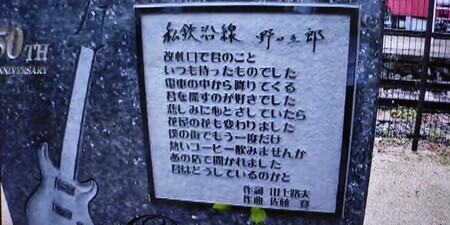 私鉄沿線 野口五郎
50TH
ANNIVERSARY
改札口で君のこと
いつも待ったものでした
電車の中から降りてくる
君を探すのが好きでした
悲しみに心とざしていたら
花屋の花も変わりました
僕の街でもう一度だけ
熱いコーヒー飲みませんか
あの店で聞かれました
君はどうしているのかと
作詞 山上路夫
作曲 佐藤 寛